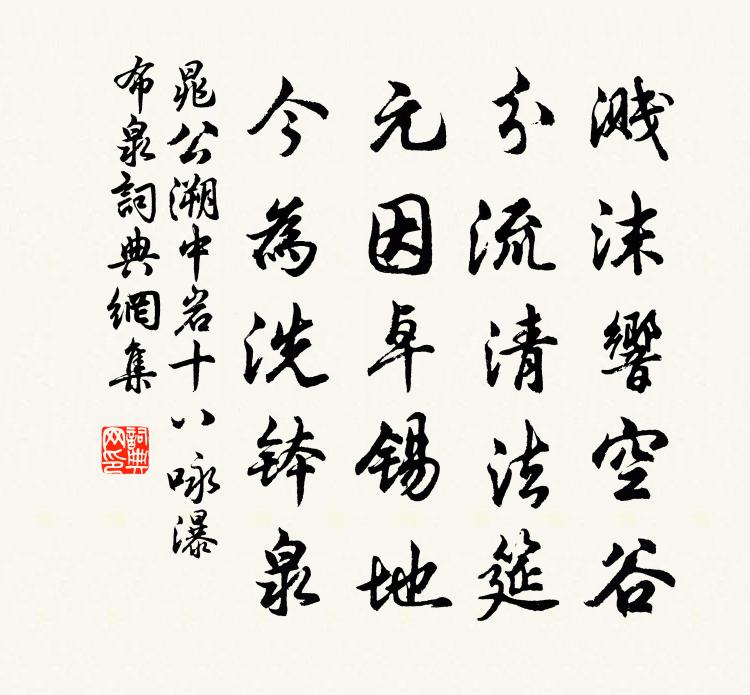 濺沫響空谷
分流清法筵
元因卓锡地
今為洗鉢泉
晁公溯中岩十八咏瀑
布泉詞典網集
詞典
网印